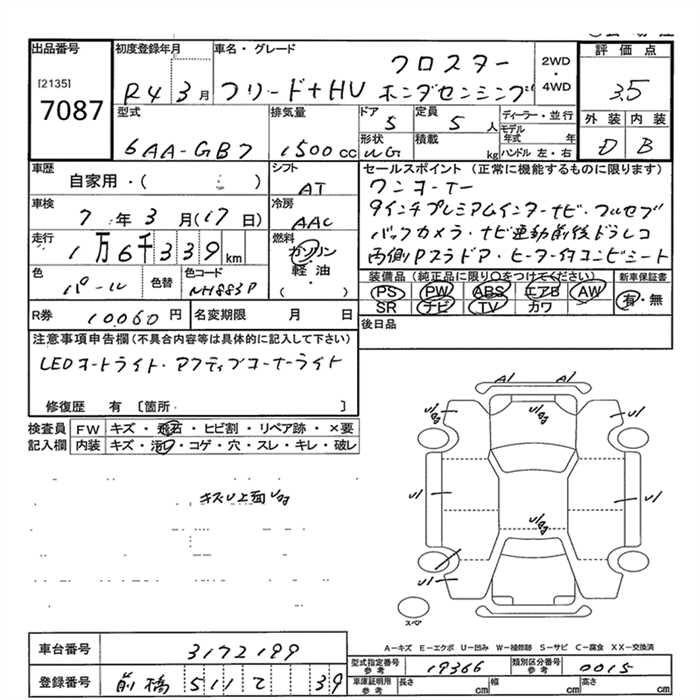 出品番号 初度登録年月 車名・グレード 2WD・4WD 評価点
[2135]
7087
R4 3月 フリード+HV クロスター ホンダセンシング 3.5
型式 排気量 ドア 定員 ディーラー・並行 外装 内装
6AA-GB7 1500cc 5 5人 モデル年式 年 D B
形状 積載 kg ハンドル 左・右
車歴 シフト セールスポイント(正常に機能するものに限ります)
自家用・( ) AT ワンオーナー
車検 冷房 9インチプレミアムインターナビ・フルセグ
7年3月(17日) AAC バックカメラ・ナビ連動前後ドラレコ
走行 燃料 両側Pスラドア・ヒーター付コンビシート
1万6千339km ガソリン
軽油
( ・ )
色 色替 色コード 装備品(純正品に限り○をつけてください) 新車保証書
パール NH883P PS PW ABS エアB AW 有・無
SR ナビ TV カワ
R券 10060円 名変期限 月 日 後日品
注意事項申告欄(不具合内容等は具体的に記入して下さい)
LEDオートライト・アクティブコーナーライト
修復歴 有 [箇所 ]
検査員 FW キズ・飛石・ヒビ割・リペア跡・×要
記入欄 内装 キズ・汚し・コゲ・穴・スレ・キレ・破レ
A1 A1
U/g U/g U1
キズU上面U/g
U1 U1
U/g
U1
スペア
A-キズ E-エクボ U-凹み W-補修跡 S-サビ C-腐食 XX-交換済
車台番号 3172199 型式指定番号 参考 19366 類別区分番号 参考 0015
登録番号 前橋 511 て 39 車庫証明用 参考 長さ cm 幅 cm 高さ cm